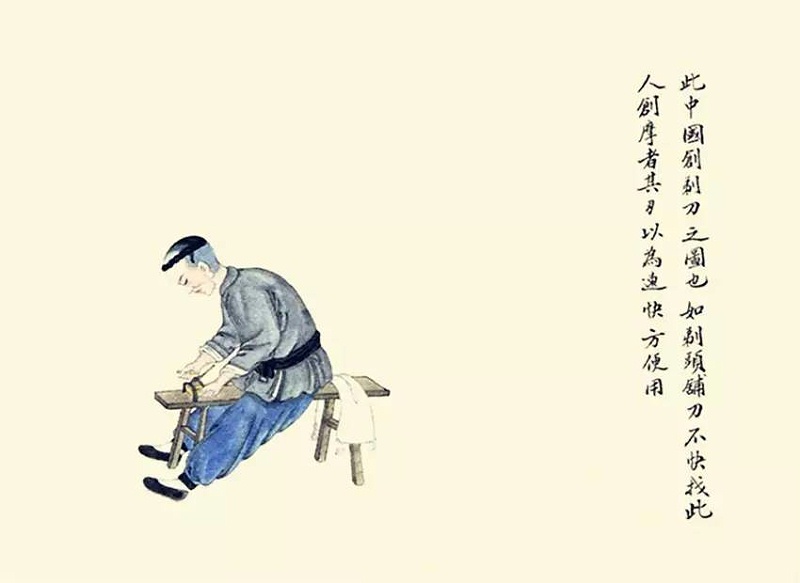 此中國創剃刀之圖也如剃頭舖刀不快找此
人創摩者其刃以為速快方便用